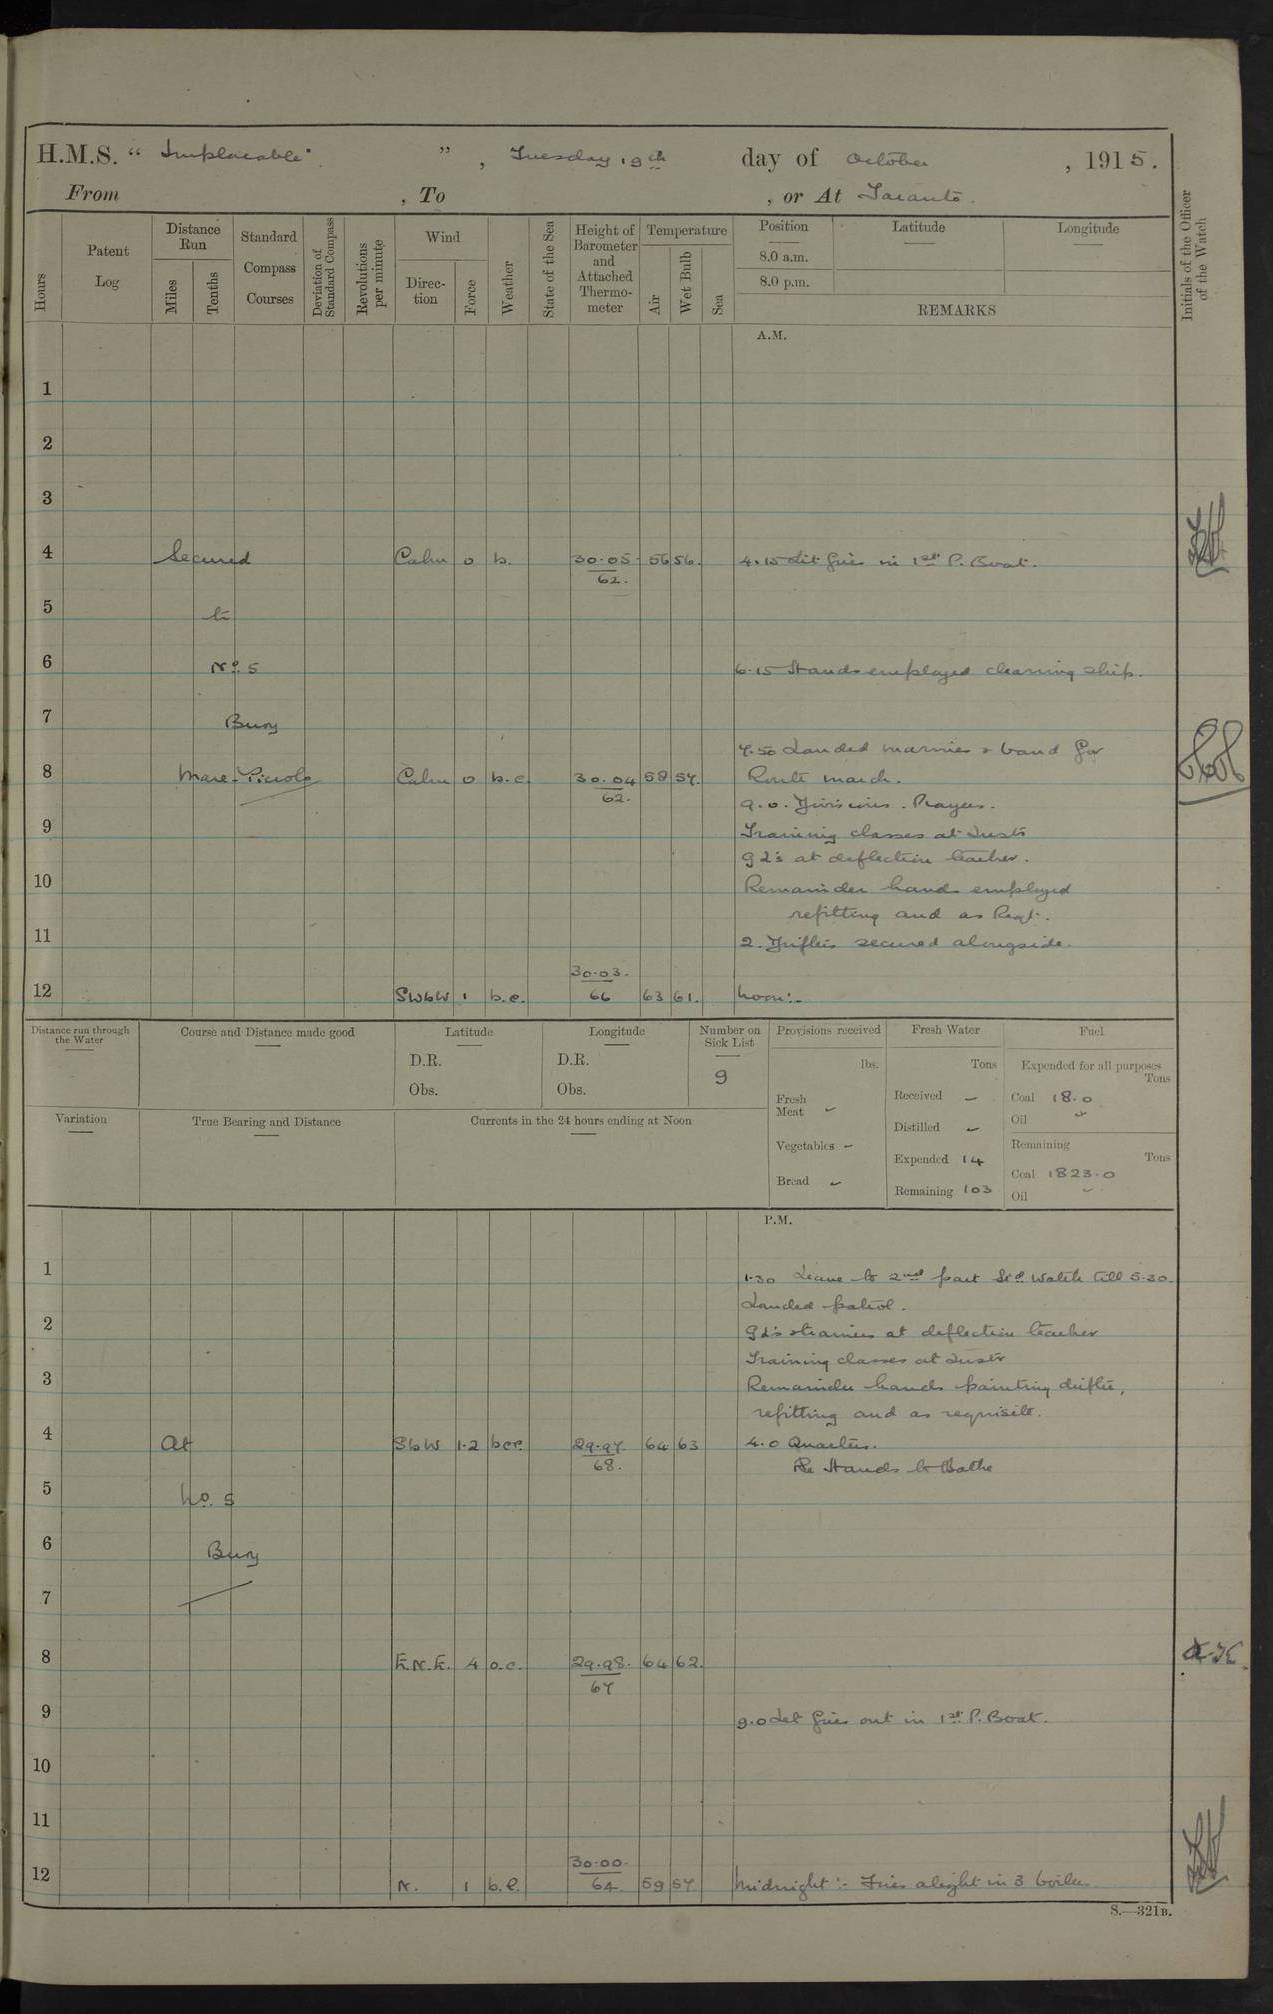 H.M.S. " Implacable " , Tuesday 19th day of October , 1915.
From , To , or At Taranto.
Hours
Patent Log
Distance Run
Miles
Tenths
Standard Compass Courses
Deviation of Standard Compass
Revolutions per minute
Wind
Direction
Force
Weather
State of the Sea
Height of Barometer and Attached Thermometer
Temperature
Air
Wet Bulb
Sea
Position
8.0 a.m.
8.0 p.m.
Latitude
Longitude
REMARKS
Initials of the Officer of the Watch
A.M.
1
2
3
4 Secured Calm 0 b. 30.05 56 56. 4.15 Lit fires in 1st P. Boat.
62.
5 to
6 No. 5 6.15 Hands employed cleaning ship.
7 Buoy
7.50 Landed marines & band for
8 Mare Piccolo Calm 0 b.c. 30.04 58 57. Route march.
62.
9.0. Divisions. Prayers.
9 Training classes at Insts
at deflection teacher.
10 Remainder hands employed
refitting and as Reqt.
11 2. Drifters secured alongside.
30.03.
12 SWbW 1 b.c. 66 63 61. Noon:-
Distance run through the Water
Course and Distance made good
Latitude
D.R.
Obs.
Longitude
D.R.
Obs.
Number on Sick List
9
Provisions received
lbs.
Fresh Meat -
Vegetables -
Bread -
Fresh Water
Tons
Received -
Distilled -
Expended 14
Remaining 103
Fuel
Expended for all purposes
Tons
Coal 18.0
Oil -
Remaining
Tons
Coal 1823.0
Oil -
Variation
True Bearing and Distance
Currents in the 24 hours ending at Noon
P.M.
1 1.30 Leave to 2nd part Std. Watch till 5.30.
Landed patrol.
2 at deflection teacher
Training classes at Instr
3 Remainder hands painting drifter,
refitting and as requisite.
4 At SbW 1.2 bcp. 29.97 64 63 4.0 Quarters.
68. Hands to Bathe
5 No. 5
6 Buoy
7
8 E.N.E. 4 o.c. 29.98. 64 62.
67
9 9.0 Let fires out in 1st P. Boat.
10
11
30.00.
12 N. 1 b.c. 64. 59 57. Midnight:- Fires alight in 3 boilers
S.—321B.